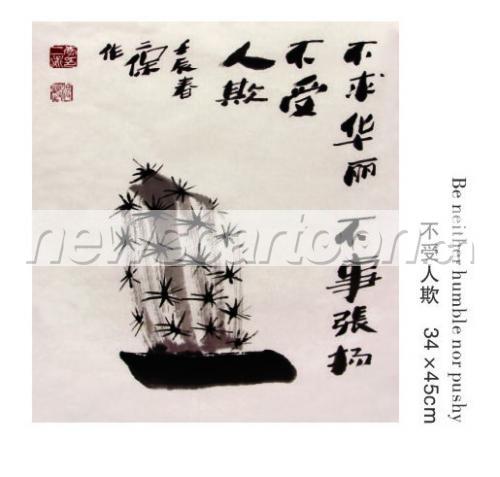 不求华丽 不事張扬
不受
人欺
壬辰春
作
newscartoon
不受人欺 34×45cm
Be neither humble nor pushy